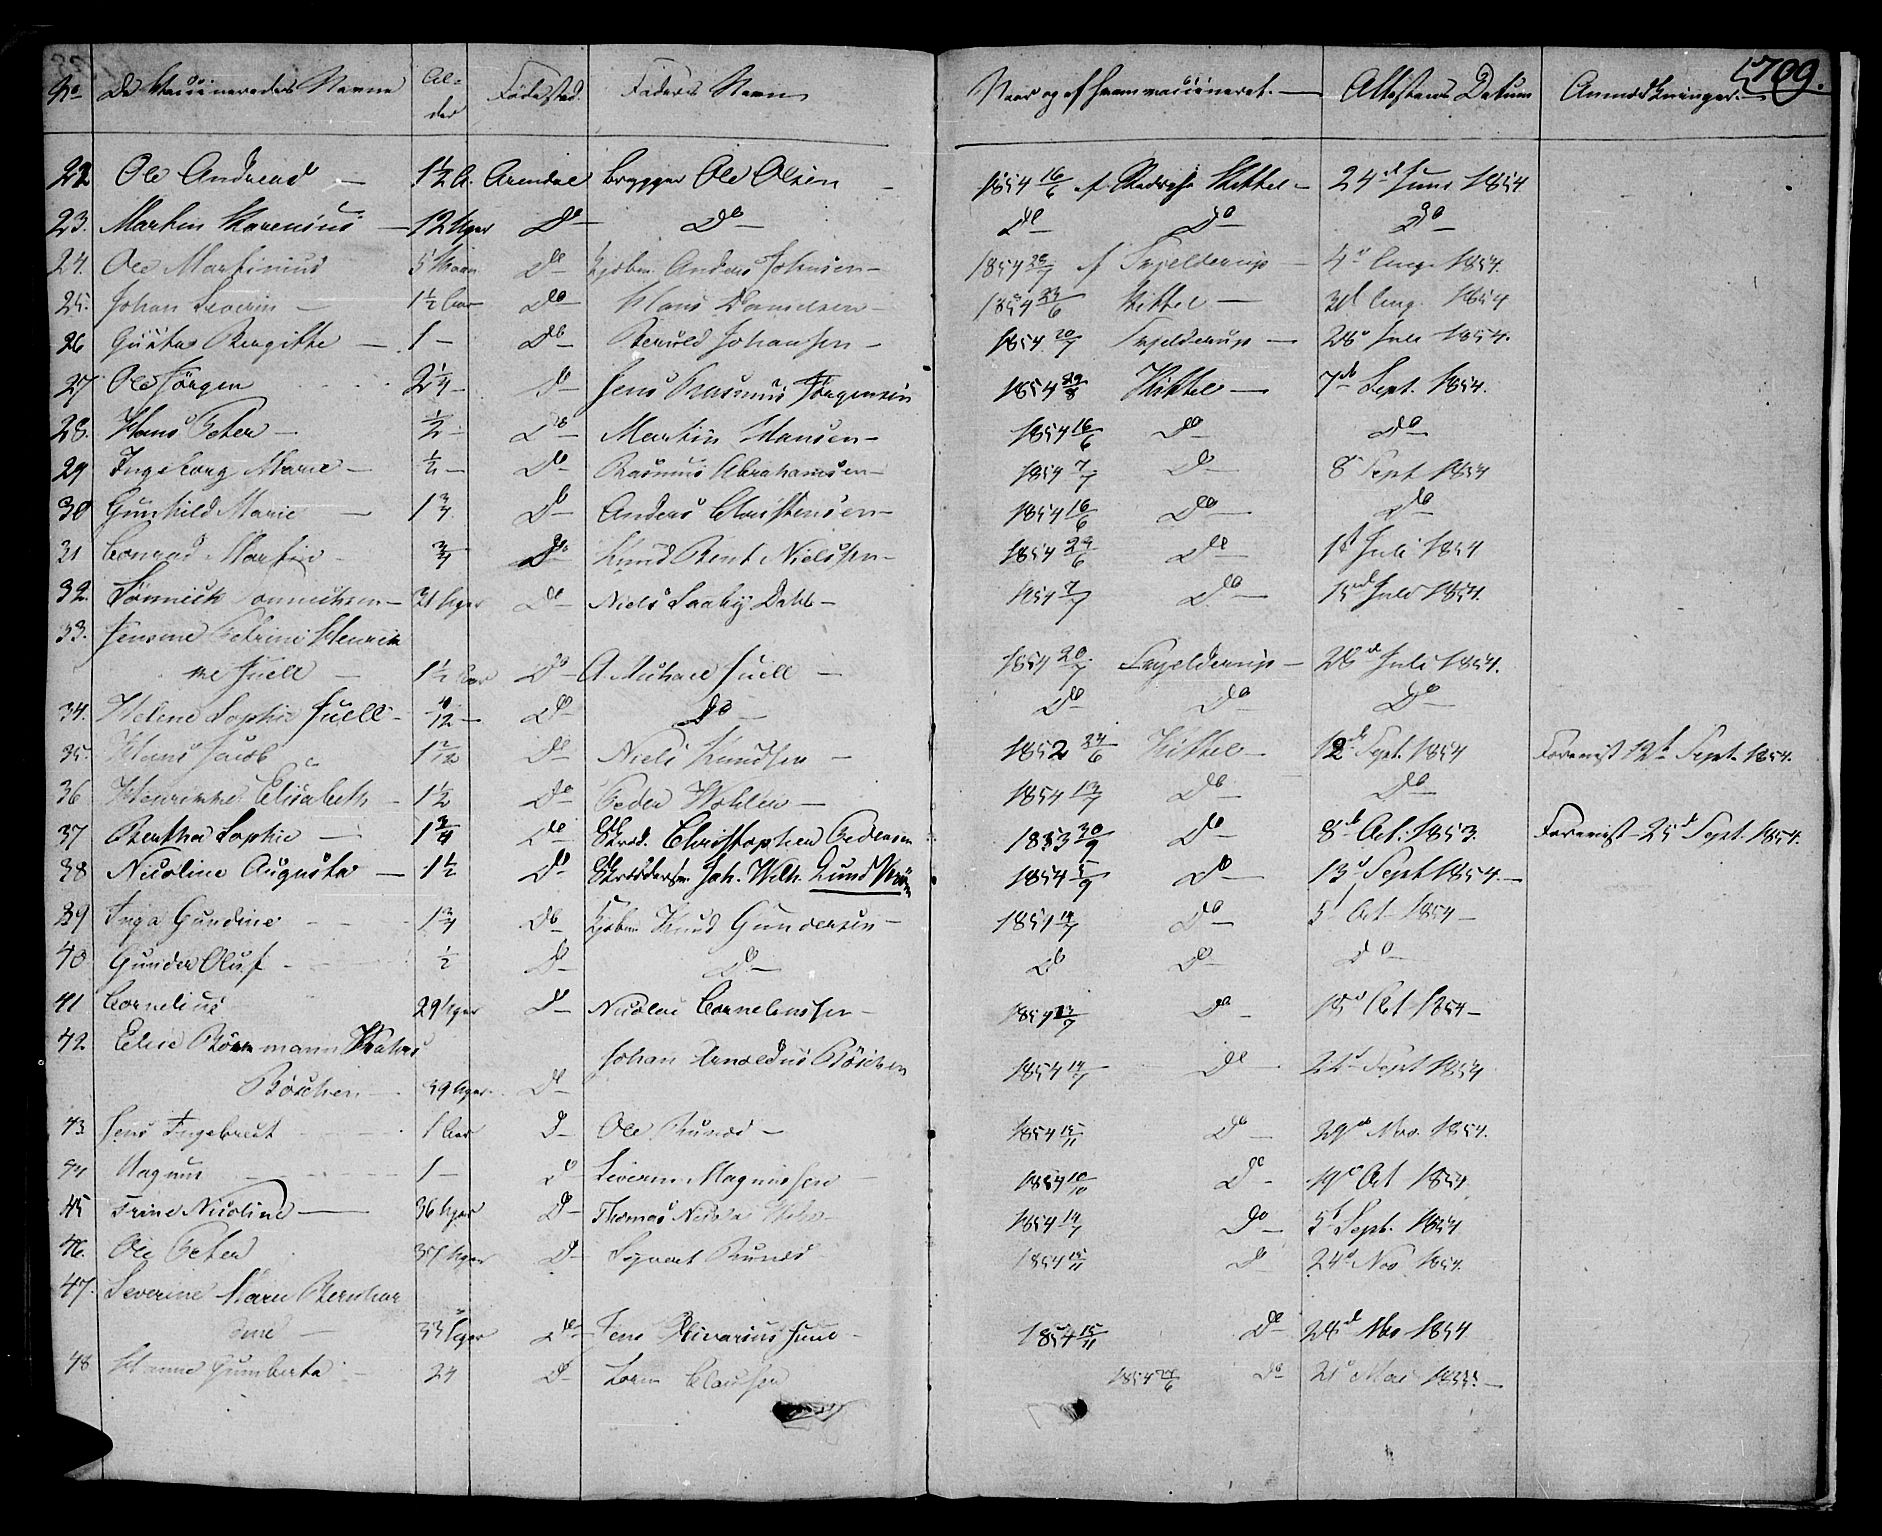 709.
No De Vaccineredes Navne Alder Fødested. Faders Navn Naar og af hvem vaccineret. Attestens Datum Anmærkninger.
22 Ole Andreas 1½ A. Arendal Brygger Ole Olsen 1854 16/6 af Kittel 24d Juni 1854
23. Martin 12 Uger Do Do Do Do Do
24. Ole Martinius 5 Do Kjøbm Anders Johnsen 1854 af Fajelderup 4d Aug. 1854.
25. Johan Severin 1½ Aar Do Hans Danielsen 1854 23/6 Kittel 3d Aug. 1854
26 Bergitte 1 Do Johansen 1854 20/7 Fajelderup 28d Juli 1854.
27 Ole Jørgen 2¼ Do Jens Rasmus Jørgensen 1854 29/8 Kittel 7d Sept. 1854.
28. Hans Peter ½ Do Martin Hansen 1854 16/6 Do Do
29 Ingeborg Marie ½ Do Rasmus Abrahamsen 1854 7/7 Do 8d Sept 1854
30 Gunhild Marie 1¾ Do Anders Christensen 1854 16/6 Do Do
31 Conrad Martin ¾ Do Knud Bent Nielssen 1854 29/6 Do 1d Juli 1854
32. Sønnich Sønnichsen 31 Uger Do Niels Saaby Dahl 1854 7/7 Do 15d Juli 1854.
33. Jensine Petrine Henrik
ke Juell 1½ Aar Do A. Michael Juell 1854 20/7 Fajelderup 28d Juli 1854.
34. Helene Sophie Juell /12 Do Do Do Do Do
35. Hans Jacob 1 2/12 Do Niels Knudsen 1852 24/6 Kittel 12d Sept. 1854 Forevist 12d Sept. 1854.
36 Henrikke Elisabeth 1½ Do Peder Wohlen 1854 13/7 Do Do
37 Bertha Sophie 1¾ Do Skræd. Christopher Pedersen 1853 30/9 Do 8d Oct. 1853. Forevist 25d Sept. 1854.
38 Nicoline Augusta 1½ Do Joh. Wilh. Lund 1854 5/9 Do 13d Sept 1854.
39 Inga Gundine 1¾ Do Kjøbm Knud Gundersen 1854 14/7 Do 5d Oct 1854
40 Gunder Oluf ½ Do Do Do Do Do
41 Cornelius 29 Uger Do Nicolai Corneliussen 1854 13/7 Do 18d Oct 1854
42 Elise
Böschen 39 Uger. Do Johan Arnoldus Böschen 1854 14/7 Do 22d Sept 1854
43. Jens Ingebregt 1 Aar Do Ole 1854 15/11 Do 29d Nov. 1854.
44 Magnus 1 Do Severin Magnussen 1854 10/10 Do 19d Oct 1854.
45 Trine Nicoline 36 Uger Do Thomas Nicolai 1854 14/7 Do 5d Sept. 1854
46. Ole Peter 37 Uger Do Sivert 1854 15/11 Do 24d Nov 1854.
47. Severine Marie Bernhar
dine 33 Uger Do Jens Olivarius Juul 1854 15/11 Do 28d Nov 1854
48 Hanne Gumberta 24 Do Claussen 1854 Do 21d Mai 1855.